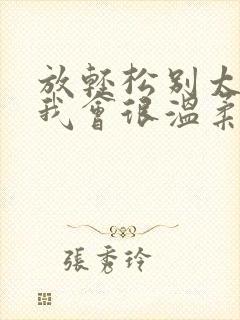 放轻松别太
我会很温柔
張秀玲